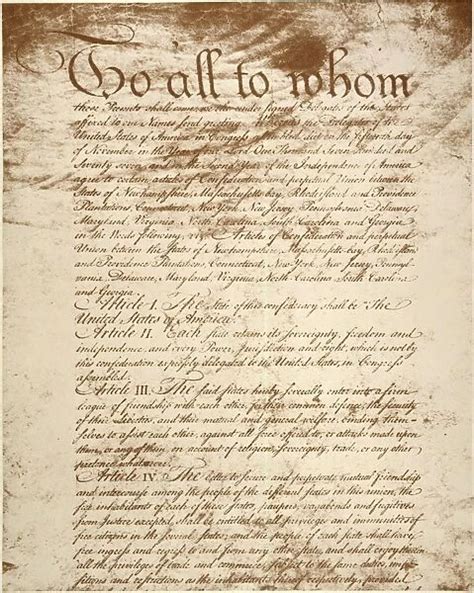 To all to whom
these Presents shall come, we the under signed Delegates of the States
affixed to our Names send greeting. Whereas the Delegates of the
United States of America in Congress assembled did on the fifteenth day
of November in the Year of our Lord One Thousand Seven Hundred and
Seventy seven, and in the Second Year of the Independence of America
agree to certain articles of Confederation and perpetual Union between the
States of Newhampshire, Massachusetts-bay, Rhodeisland and Providence
Plantations, Connecticut, New York, New Jersey, Pennsylvania, Delaware,
Maryland, Virginia, North-Carolina, South-Carolina and Georgia
in the Words following, viz. Articles of Confederation and perpetual
Union between the States of Newhampshire, Massachusetts-bay, Rhodeisland
and Providence Plantations, Connecticut, New-York, New-Jersey, Pennsyl-
vania, Delaware, Maryland, Virginia, North-Carolina, South-Carolina
and Georgia.
Article I. The Stile of this confederacy shall be "The
United States of America."
Article II. Each state retains its sovereignty, freedom and
independence, and every Power, Jurisdiction and right, which is not by
this confederation expressly delegated to the United States, in Congress
assembled.
Article III. The said states hereby severally enter into a firm
league of friendship with each other, for their common defence, the security
of their Liberties, and their mutual and general welfare, binding them-
selves to assist each other, against all force offered to, or attacks made upon
them, or any of them, on account of religion, sovereignty, trade, or any other
pretence whatever.
Article IV. The better to secure and perpetuate mutual friendship
and intercourse among the people of the different states in this union, the
free inhabitants of each of these states, paupers, vagabonds and fugitives
from Justice excepted, shall be entitled to all privileges and immunities of
free citizens in the several states; and the people of each state shall have
free ingress and regress to and from any other state, and shall enjoy therein
all the privileges of trade and commerce, subject to the same duties, im-
positions and restrictions as the inhabitants thereof respectively, provided